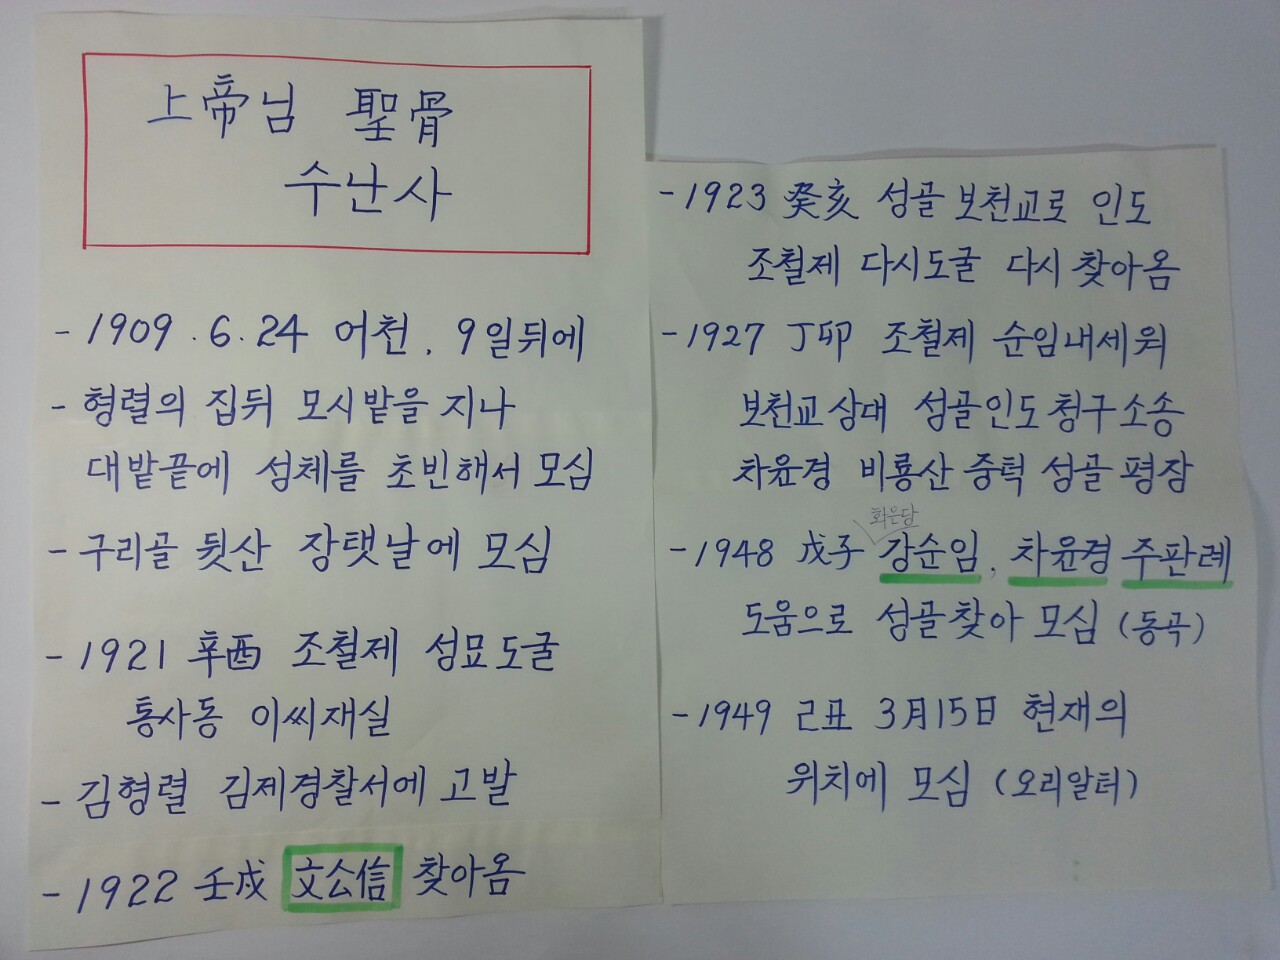 上帝님 聖骨
수난사
- 1909.6.24 어천. 9일뒤에
- 형렬의 집뒤 모시밭을 지나
대밭끝에 성체를 초빈해서 모심
- 구리골 뒷산 장탯날에 모심
- 1921 辛酉 조철제 성묘도굴
통사동 이씨재실
- 김형렬 김제경찰서에 고발
- 1922 壬戌 文公信 찾아옴
- 1923 癸亥 성골 보천교로 인도
조철제 다시도굴 다시 찾아옴
- 1927 丁卯 조철제 순임내세워
보천교상대 성골인도청구소송
차윤경 비룡산 중턱 성골 평장
화은당
- 1948 戊子 강순임, 차윤경 주판례
도움으로 성골찾아 모심 (동곡)
- 1949 己丑 3月15日 현재의
위치에 모심 (오리알터)